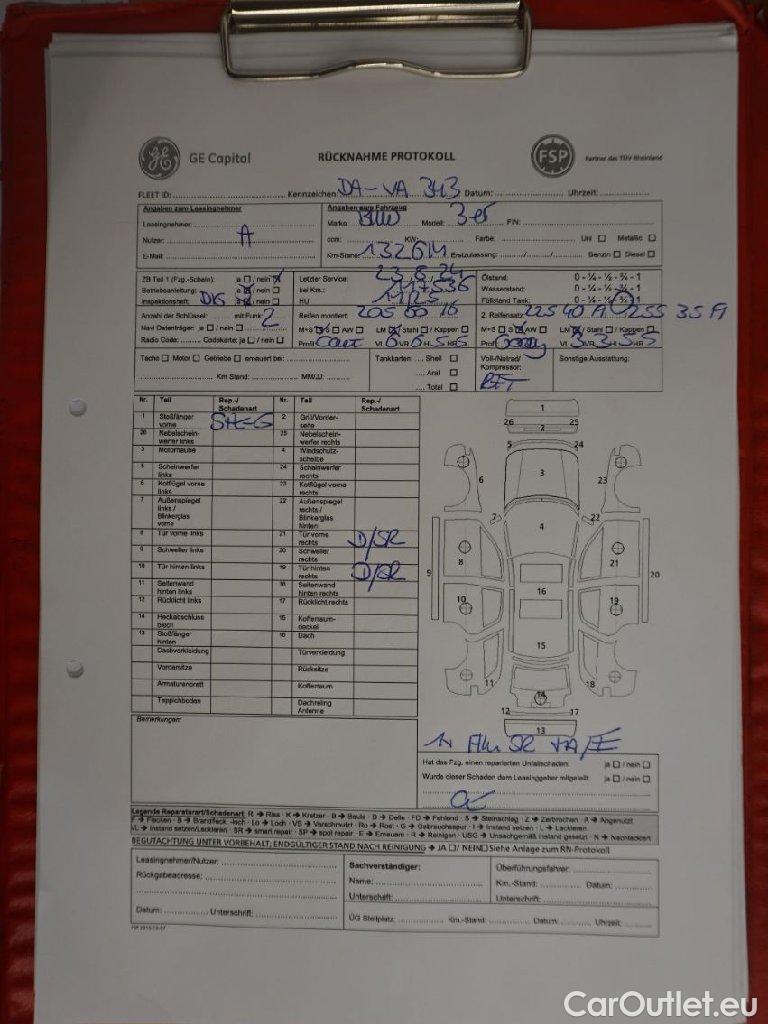 GE Capital
RÜCKNAHME PROTOKOLL
FSP
Partner des TÜV Rheinland
FLEET ID: Kennzeichen: DA-VA 343 Datum: Uhrzeit:
Angaben zum Leasingnehmer
Angaben zum Fahrzeug
Leasingnehmer:
Marke: BMW Modell: 3er FIN:
Nutzer: A
ccm: KW: Farbe: Uni Metallic
E-Mail:
Km-Stand: Erstzulassung: Benzin Diesel
ZB Teil 1 (Fzg.-Schein): ja / nein
Letzter Service: 23.8.24
Ölstand: 0 - ¼ - ½ - ¾ - 1
Betriebsanleitung: ja / nein
bei Km.: 117536
Wasserstand: 0 - ¼ - ½ - ¾ - 1
Inspektionsheft: ja / nein
HU
Füllstand Tank: 0 - ¼ - ½ - ¾ - 1
Anzahl der Schlüssel: mit Funk: 2
Reifen montiert: 205 60 16
2. Reifensatz:
Navi Datenträger: ja / nein
M+S AW LM Stahl / Kappen
M+S AW LM Stahl / Kappen
Radio Code: Codekarte: ja / nein
Profil VL VR HL HR
Profil VL VR HL HR
Tacho Motor Getriebe erneuert bei:
Km Stand: MM/JJ:
Tankkarten Shell
Aral
Total
Voll-/Notrad/
Kompressor:
Sonstige Ausstattung:
Nr. Teil Rep.-/ Schadenart Nr. Teil Rep.-/ Schadenart
1 Stoßfänger vorne 2 Grill/Vorderseite
26 Nebelscheinwerfer links 25 Nebelscheinwerfer rechts
3 Motorhaube 4 Windschutzscheibe
5 Scheinwerfer links 24 Scheinwerfer rechts
6 Kotflügel vorne links 23 Kotflügel vorne rechts
7 Außenspiegel links / Blinkerglas vorne 22 Außenspiegel rechts / Blinkerglas hinten
8 Tür vorne links 21 Tür vorne rechts D/SR
9 Schweller links 20 Schweller rechts
10 Tür hinten links 19 Tür hinten rechts D/SR
11 Seitenwand hinten links 18 Seitenwand hinten rechts
12 Rücklicht links 17 Rücklicht rechts
14 Heckabschlussblech 15 Kofferraumdeckel
13 Stoßfänger hinten 16 Dach
Dachverkleidung Türverkleidung
Vordersitze Rücksitze
Armaturenbrett Kofferraum
Teppichboden Dachreling Antenne
1
26 25
2
5 24
3
6 23
7 22
4
8 21
9 20
16
10 19
15
11 18
14
12 17
13
Bemerkungen:
Hat das Fzg. einen reparierten Unfallschaden: ja / nein
Wurde dieser Schaden dem Leasinggeber mitgeteilt: ja / nein
Legende Reparaturart/Schadenart: R → Riss · K → Kratzer · B → Beule · D → Delle · FD → Fehlend · S → Steinschlag · Z → Zerbrochen · A → Abgenutzt
F → Flecken · B → Brandfleck, -loch · Lo → Loch · VS → Verschmutzt · Ro → Rost · G → Gebrauchsspur · I → Instand setzen · L → Lackieren
IL → Instand setzen/Lackieren · SR → smart repair · SP → spot repair · E → Erneuern · R → Reinigen · USG → Unsachgemäß instand gesetzt · N → Nachlackiert
BEGUTACHTUNG UNTER VORBEHALT; ENDGÜLTIGER STAND NACH REINIGUNG → JA / NEIN Siehe Anlage zum RN-Protokoll
Leasingnehmer/Nutzer:
Sachverständiger:
Überführungsfahrer:
Rückgabeadresse:
Name:
Km.-Stand: Datum:
Unterschrift:
Unterschrift:
Datum: Unterschrift:
ÜG Stellplatz: Km.-Stand: Datum: Uhrzeit:
CarOutlet.eu